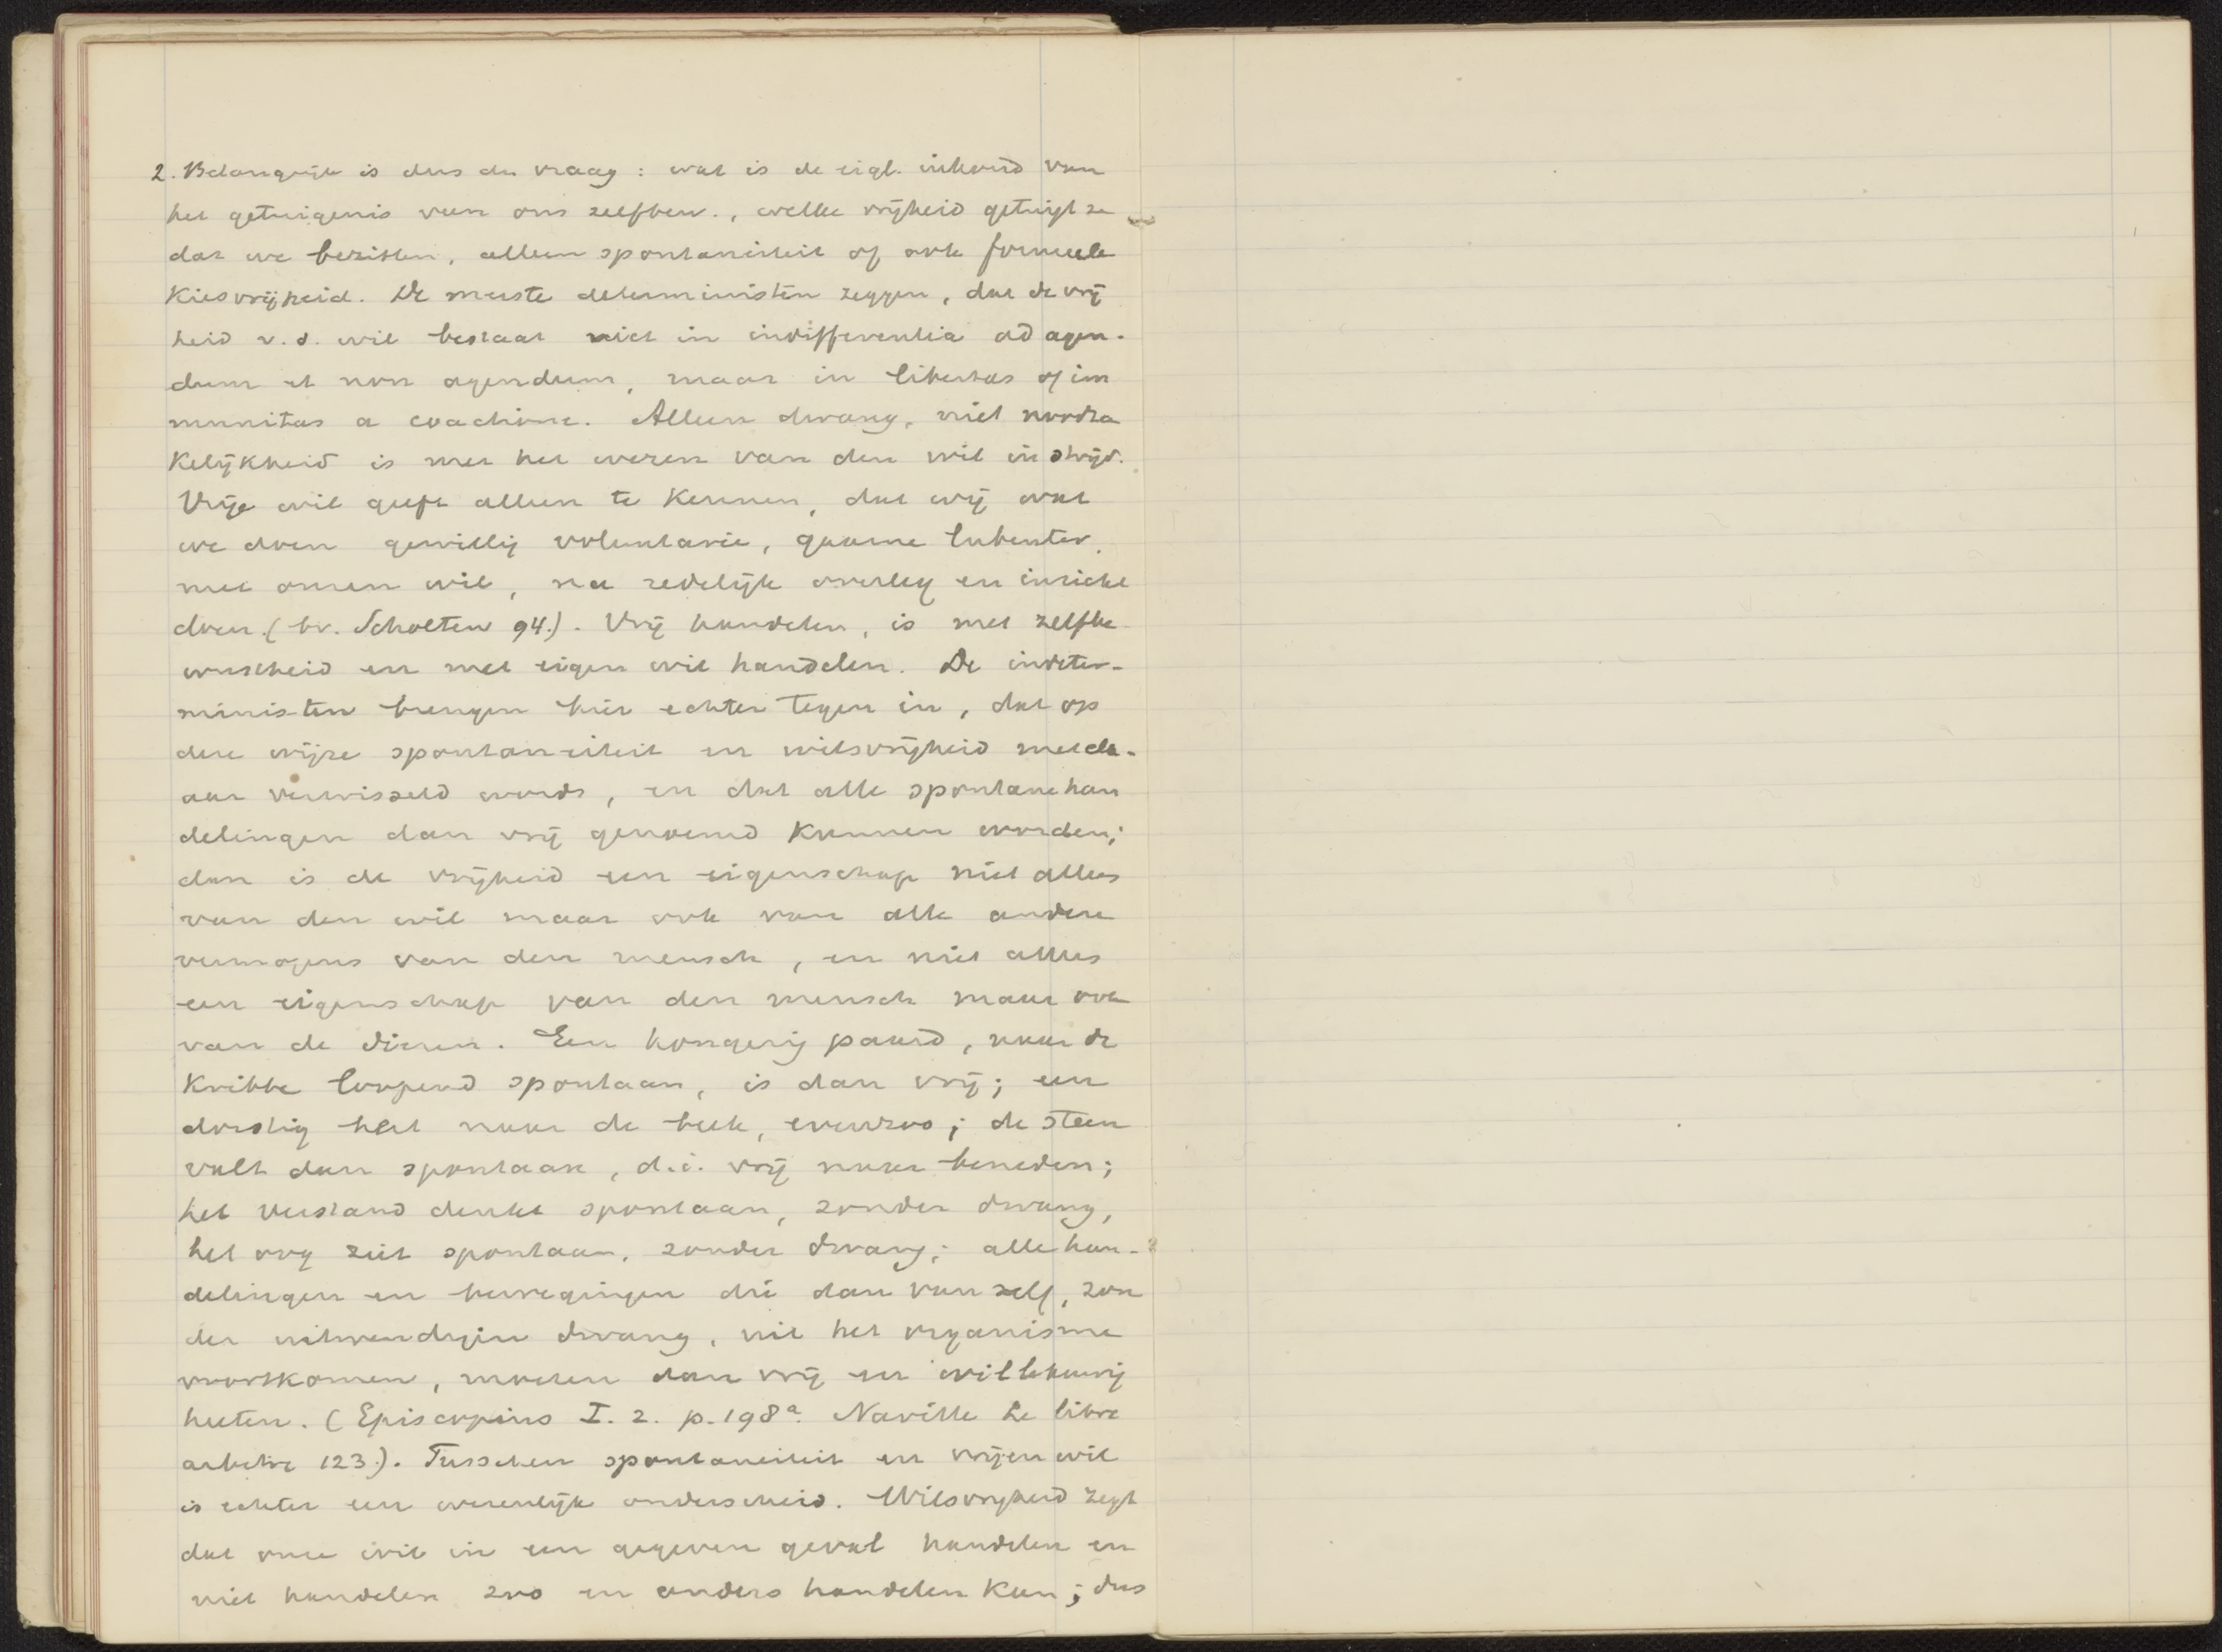 2. Belangrijk is dus de vraag: wat is de eigl. inhoud van
het getuigenis van ons zelfbew., welke vrijheid getuigt ze
dat we bezitten, alleen spontaniteit of ook formeele
Kiesvrijheid. De meeste deterministen zeggen, dat de vrij
heid v.d. wil bestaat niet in indifferentia ad agen-
dum et non agendum, maar in libertas of im
munitas a coactione. Alleen dwang, niet noodza
kelijkheid is met het wezen van den wil in strijd.
Vrije wil geeft alleen te kennen, dat wij wat
we doen gewillig voluntarie, gaarne lubenter,
met onzen wil, na redelijk overleg en inzicht
doen. (bv. Scholten 94.). Vrij handelen, is met zelfbe
wustheid en met eigen wil handelen. De indeter-
ministen brengen hier echter tegen in, dat op
deze wijze spontaneiteit en wilsvrijheid met elk-
aar verwisseld wordt, en dat alle spontane han
delingen dan vrij genoemd kunnen worden;
dan is de vrijheid een eigenschap niet alleen
van den wil maar ook van alle andere
vermogens van den mensch, en niet alleen
een eigenschap van den mensch maar ook
van de dieren. Een hongerig paard, naar de
Kribbe loopend spontaan, is dan vrij; een
dorstig hert naar de beek, evenzoo; de steen
valt dan spontaan, d.i. vrij naar beneden;
het verstand denkt spontaan, zonder dwang,
het oog ziet spontaan, zonder dwang; alle han-
delingen en bewegingen die dan van zelf, zon
der uitwendigen dwang, uit het organisme
voortkomen, moeten dan vrij en willekeurig
heeten. (Episcopius I. 2. p. 198a. Naville Le libre
arbitre 123.). Tusschen spontaneiteit en vrijen wil
is echter een wezenlijk onderscheid. Wilsvrijheid zegt
dat onze wil in een gegeven geval handelen en
niet handelen zoo en anders handelen kan; dus